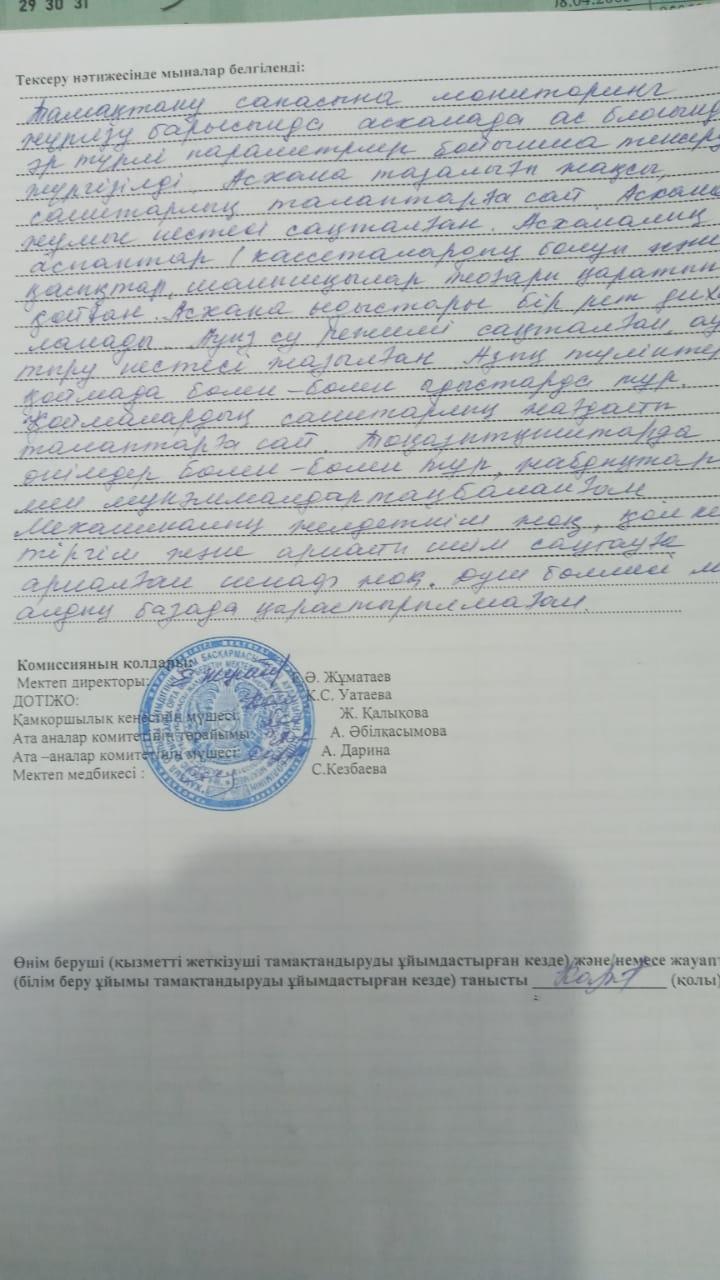 29 30 31
Тексеру нәтижесінде мыналар белгіленді:
Тамақтану сапасына мониторинг
жүргізу барысында асханада ас блогында
әр түрлі параметрлер бойынша тексеру
жүргізілді. Асхана тазалығы жақсы,
санитарлық талаптарға сай. Асхана
жұмыс кестесі сақталған. Асханалық
аспаптар (кассеталардың болуы
қасықтар, шанышқылар жоғары қаратып
қойған. Асхана ыдыстары бір рет
ланады. Ауыз су режимі сақталған
тыру кестесі жазылған Азық түліктер
қоймада бөлек-бөлек ыдыстарда тұр.
Қоймалардың санитарлық жағдайы
талаптарға сай. Тоңазытқыштарда
өнімдер бөлек-бөлек тұр, жабдықтар
мен мүкәммалдар таңбаланған
Механикалық желдеткіш жоқ, қол кеп
тіргіш және арнайы киім сақтауға
арналған шкаф жоқ. Душ бөлмесі
алдың базада қарастырылмаған.
Комиссияның қолдары:
Мектеп директоры: Ә. Жұматаев
ДОТІЖО: К.С. Уатаева
Қамқоршылық кеңесінің мүшесі: Ж. Қалықова
Ата аналар комитетінің төрайымы: А. Әбілқасымова
Ата –аналар комитетінің мүшесі: А. Дарина
Мектеп медбикесі : С.Кезбаева
Өнім беруші (қызметті жеткізуші тамақтандыруды ұйымдастырған кезде) және/немесе жауап
(білім беру ұйымы тамақтандыруды ұйымдастырған кезде) танысты (қолы)